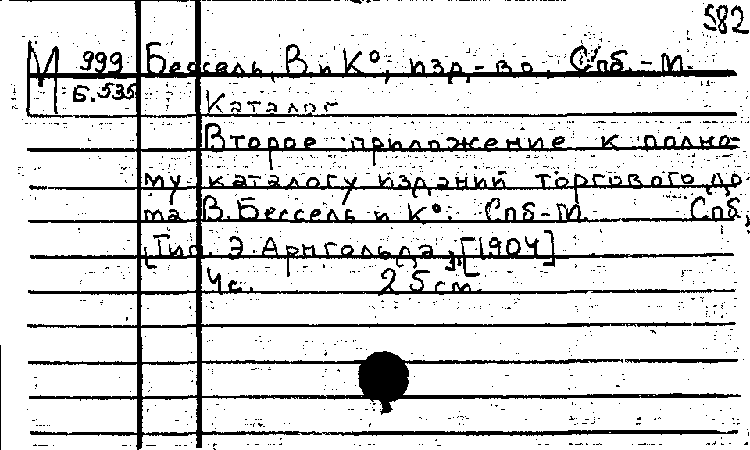 582
М 999 Бессель, В. и К°, изд-во. Спб.-М.
Б.535 Каталог
Второе приложение к полно-
му каталогу изданий торгового до-
ма В. Бессель и К°. Спб-М. Спб,
[Тип. Э. Арнгольда], [1904]
4 с. 25 см.